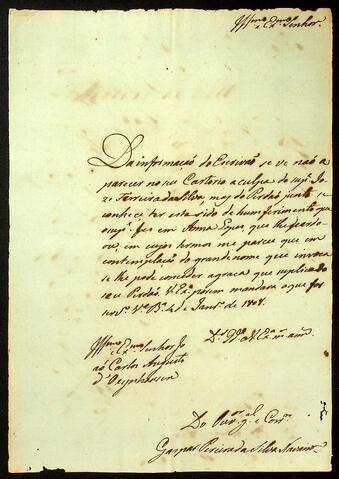 Illmo e Exmo Senhor.
Da informação do Escrivão se ve não a
parecer no seu Cartorio a culpa do sup.e Jo
ze Ferreira da Silva, mas do Perdão junto se
conhece ter esta sido de hum ferimento que
o sup.e fes em que lhe perdo
ou, em cujos termos me parece que em
contemplação do grande nome que invoca
se lhe pode conceder a graça que suplica do
seu Perdão V. Exa porem mandara o que for
servo. Va Ba 4 de Janro de 1808.
Illmo e Exmo Senhor Jo
ao Carlos Augusto
d'Oeynhausen
Ds. Gde a V. Exa ms ans
Do Ouvor gal e Corror
Gaspar Pereira da Silva Navarro